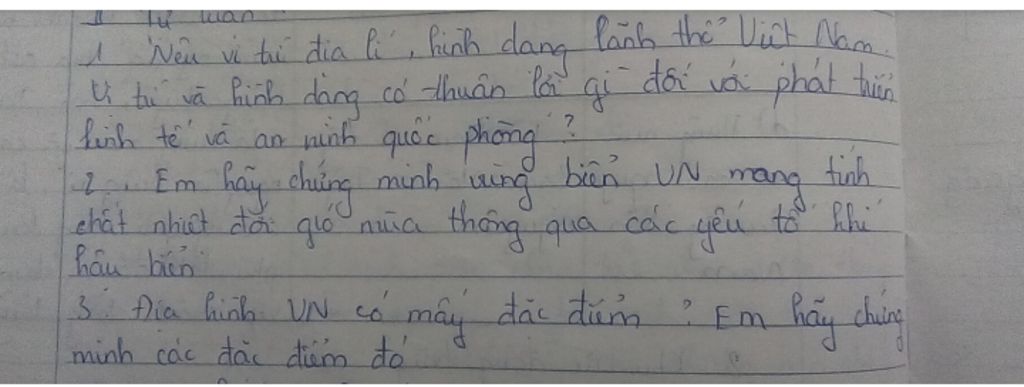 II Tự luận
1 Nêu vị trí địa lí, hình dạng lãnh thổ Việt Nam.
Vị trí và hình dạng có thuận lợi gì đối với phát triển
kinh tế và an ninh quốc phòng ?
2. Em hãy chứng minh vùng biển VN mang tính
chất nhiệt đới gió mùa thông qua các yếu tố khí
hậu biển
3. Địa hình VN có mấy đặc điểm ? Em hãy chứng
minh các đặc điểm đó